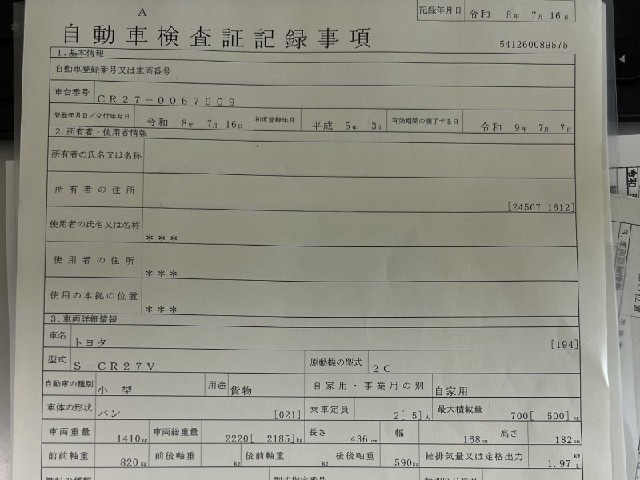 A
記録年月日 令和 8年 7月16日
自動車検査証記録事項
1.基本情報
自動車登録番号又は車両番号
車台番号
登録年月日/交付年月日 令和 8年 7月16日 初度登録年月 平成 5年 3月 有効期間の満了する日 令和 9年 7月 7日
2.所有者・使用者情報
所有者の氏名又は名称
所有者の住所
[24507 1612]
使用者の氏名又は名称 ***
使用者の住所 ***
使用の本拠の位置 ***
3.車両詳細情報
車名 トヨタ [194]
型式 S CR27V 原動機の型式 2C
自動車の種別 小型 用途 貨物 自家用・事業用の別 自家用
車体の形状 バン [021] 乗車定員 2[ 5]人 最大積載量 700[ 500]kg
車両重量 1410kg 車両総重量 2220[ 2185]kg 長さ 436cm 幅 168cm 高さ 182cm
前前軸重 820kg 前後軸重 kg 後前軸重 kg 後後軸重 590kg 総排気量又は定格出力 1.97
型式指定番号